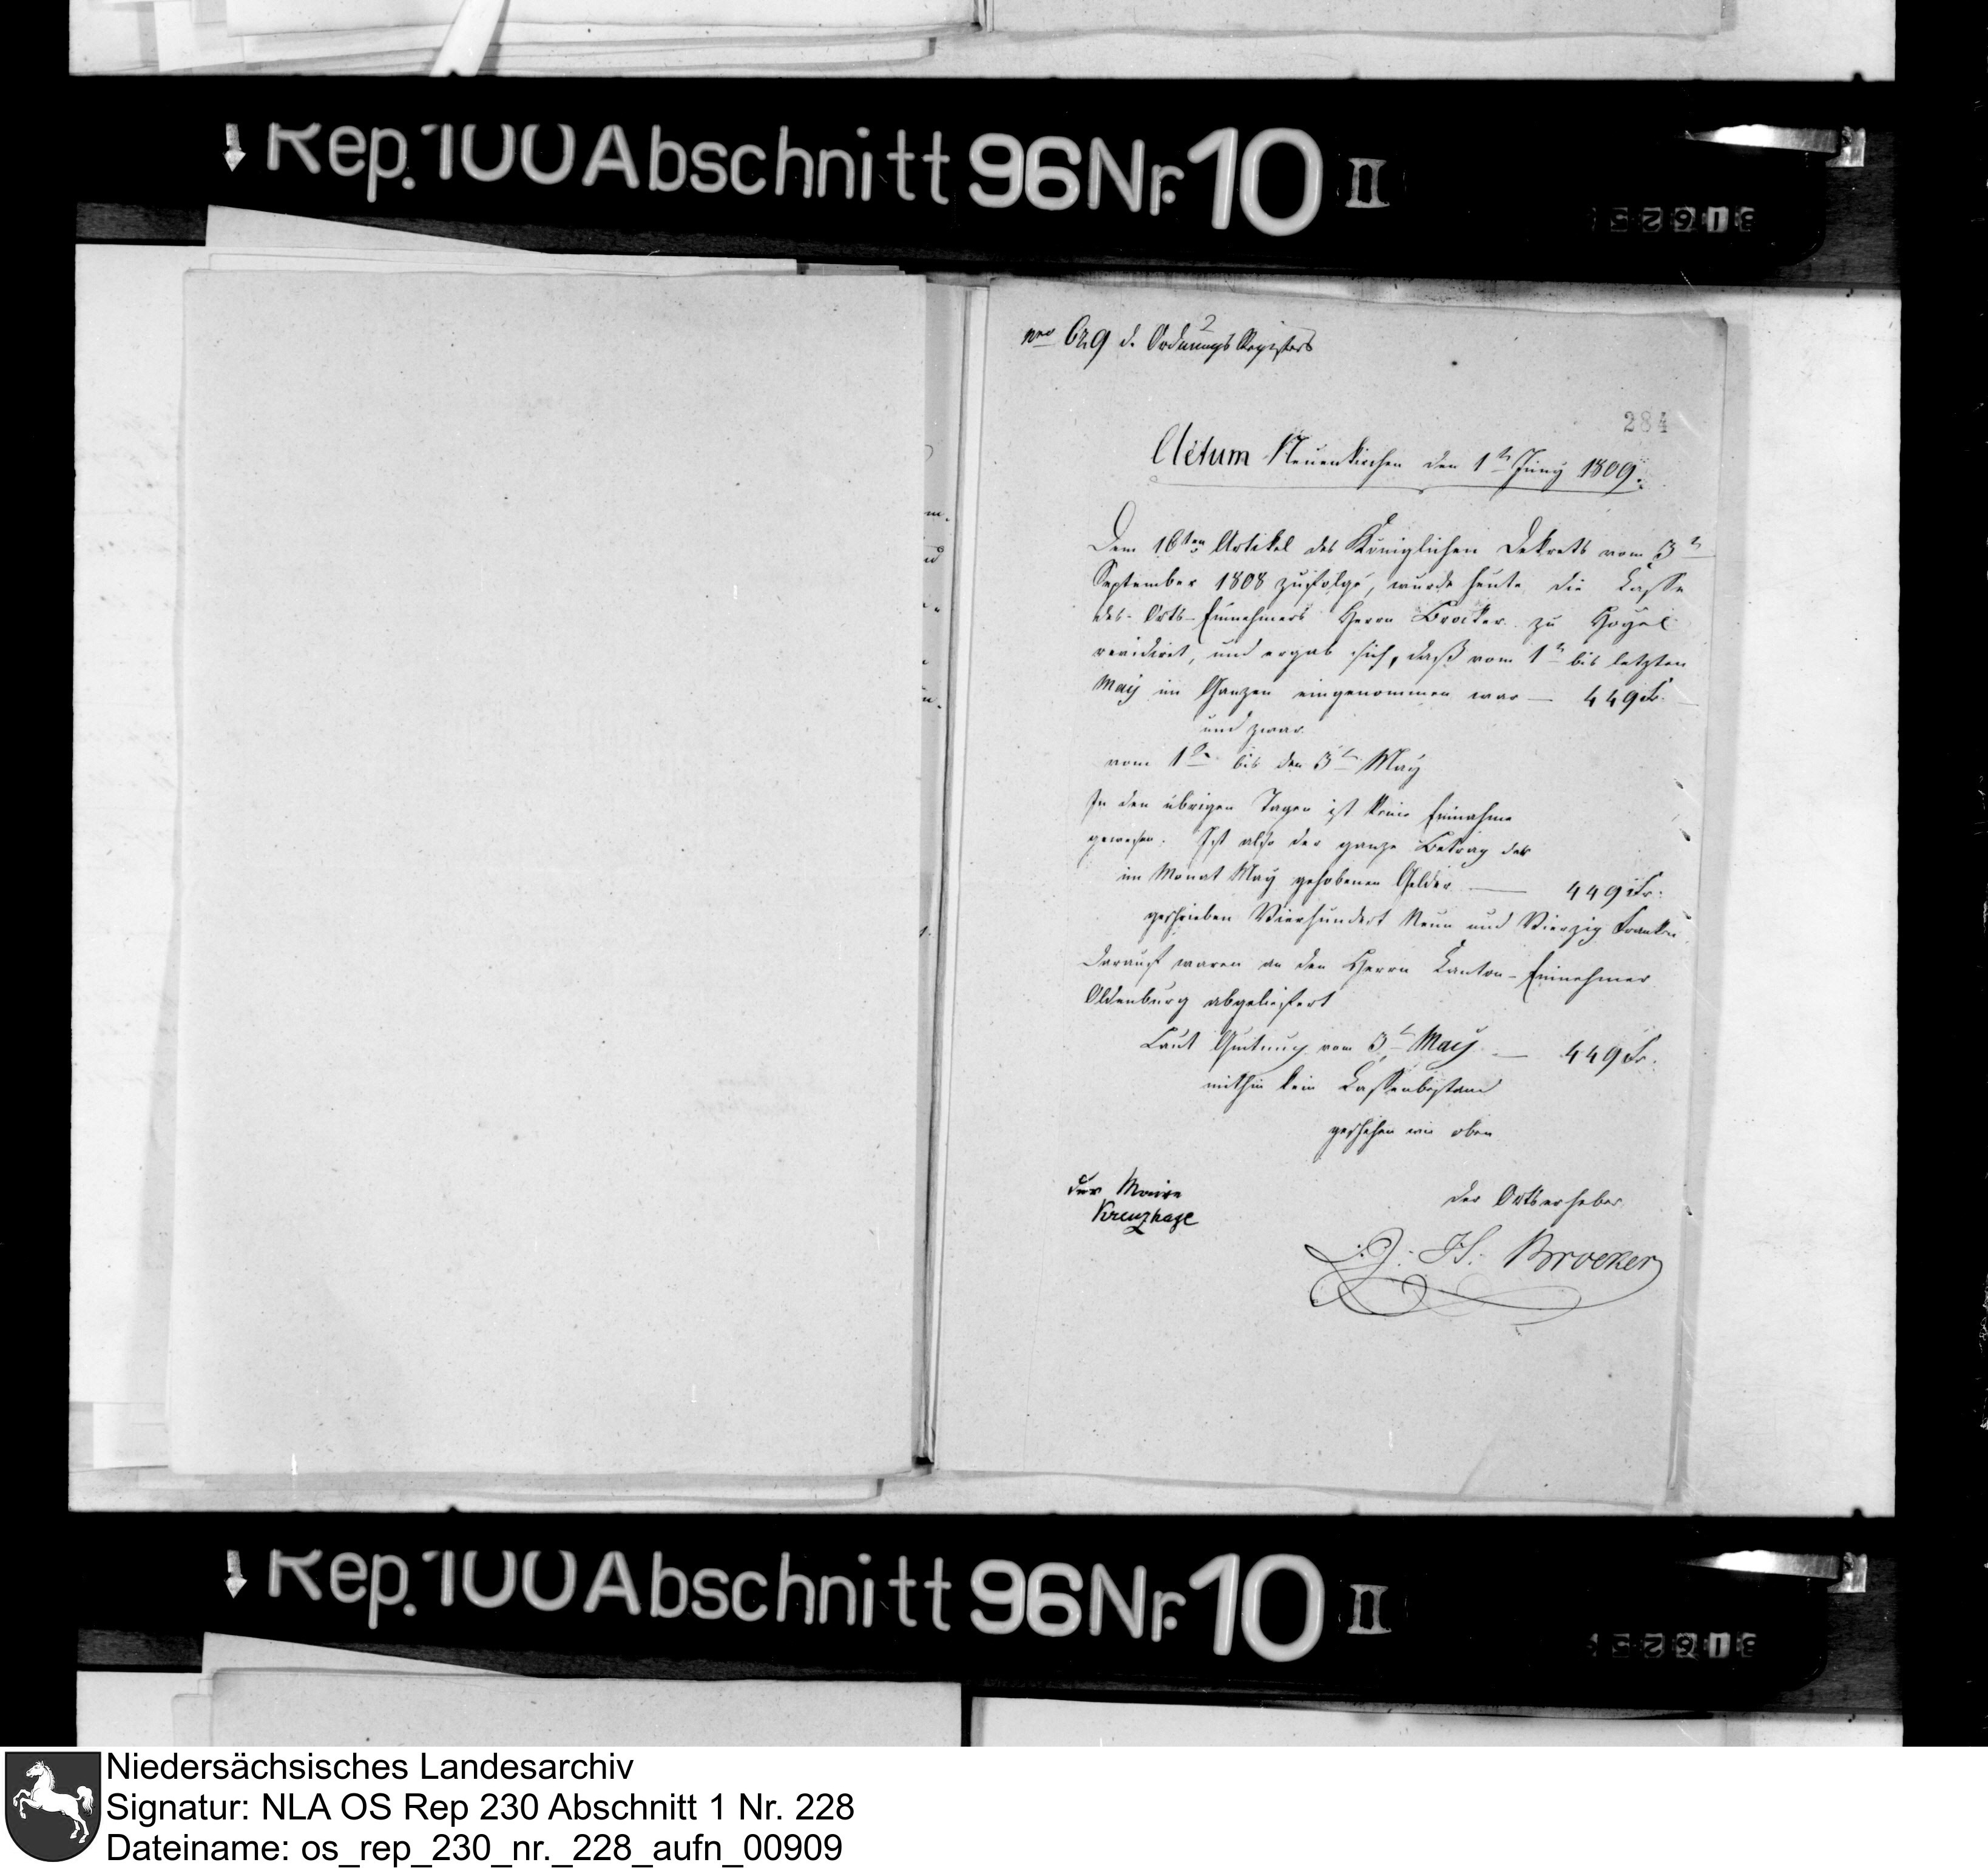 Rep. 100 Abschnitt 96 Nr. 10 II
31625
nro 629 d. OrdnungsRegisters
2
284
Actum Neuenkirchen den 1tn Juny 1809.
Dem 16ten Artikel des Königlichen Dekrets vom 3tn
September 1808 zufolge, wurde heute die Casse
des Orts-Einnehmers Herrn Brocker zu Hoyel
revidiret, und ergab sich, daß vom 1tn bis letzten
May im Ganzen eingenommen war — 449 Fr.
und zwar
vom 1tn bis den 3tn May
In den übrigen Tagen ist keine Einnahme
gewesen. Ist also der ganze Betrag der
im Monat May gehobenen Gelder — 449 Fr.
geschrieben Vierhundert Neun und Vierzig Franken
Darauf waren an den Herrn Kanton-Einnehmer
Oldenburg abgeliefert
Laut Quitung vom 3tn May — 449 Fr.
mithin kein Cassenbestand
geschehen wie oben
der Maire
Kreuzhage
der Ortserheber
H. Broeker
Rep. 100 Abschnitt 96 Nr. 10 II
31625
Niedersächsisches Landesarchiv
Signatur: NLA OS Rep 230 Abschnitt 1 Nr. 228
Dateiname: os_rep_230_nr._228_aufn_00909